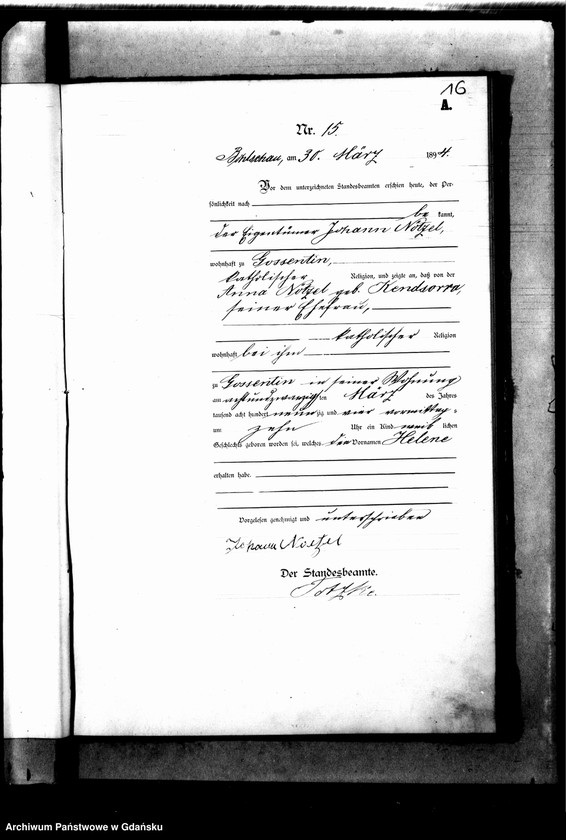 16
A.
Nr. 15.
Bohlschau, am 30. März 1894.
Vor dem unterzeichneten Standesbeamten erschien heute, der Per-
sönlichkeit nach
be kannt,
der Eigentümer Johann Notzel,
wohnhaft zu Gossentin,
katholischer Religion, und zeigte an, daß von der
Anna Notzel geb. Kendsorra,
seiner Ehefrau,
katholischer Religion
wohnhaft bei ihm
zu Gossentin in seiner Wohnung
am achtundzwanzigsten März des Jahres
tausend acht hundert neunzig und vier vormittags
um zehn Uhr ein Kind weiblichen
Geschlechts geboren worden sei, welches den Vornamen Helene
erhalten habe.
Vorgelesen genehmigt und unterschrieben
Johann Notzel
Der Standesbeamte.
Archiwum Państwowe w Gdańsku